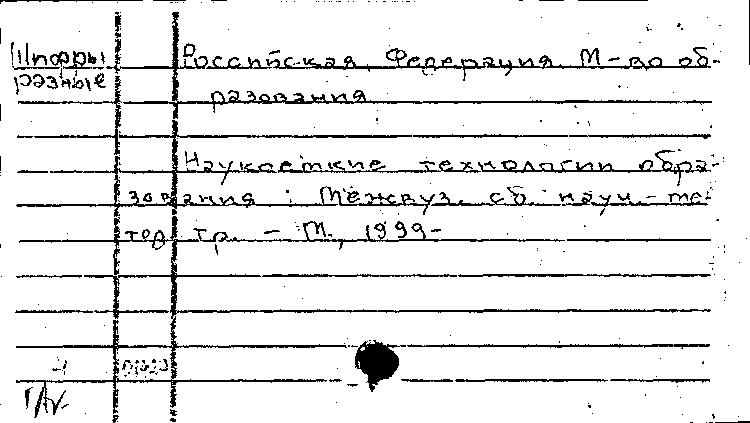 Шифры
разные
Российская Федерация. М-во об-
разования
Наукоемкие технологии обра-
зования : Межвуз. сб. науч.-ме-
тод тр. – М., 1999–